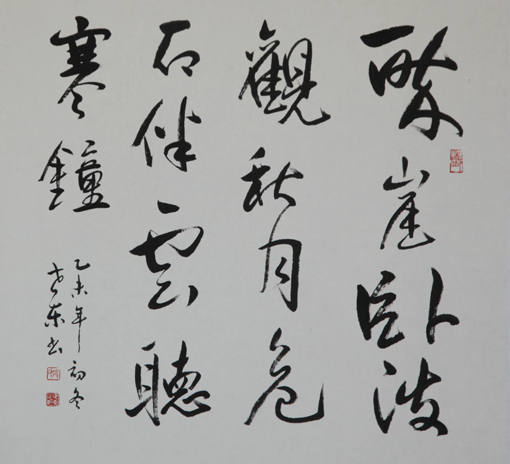 醉崖卧波
觀秋月危
石伴雲聽
寒鐘
乙未年初冬
东书